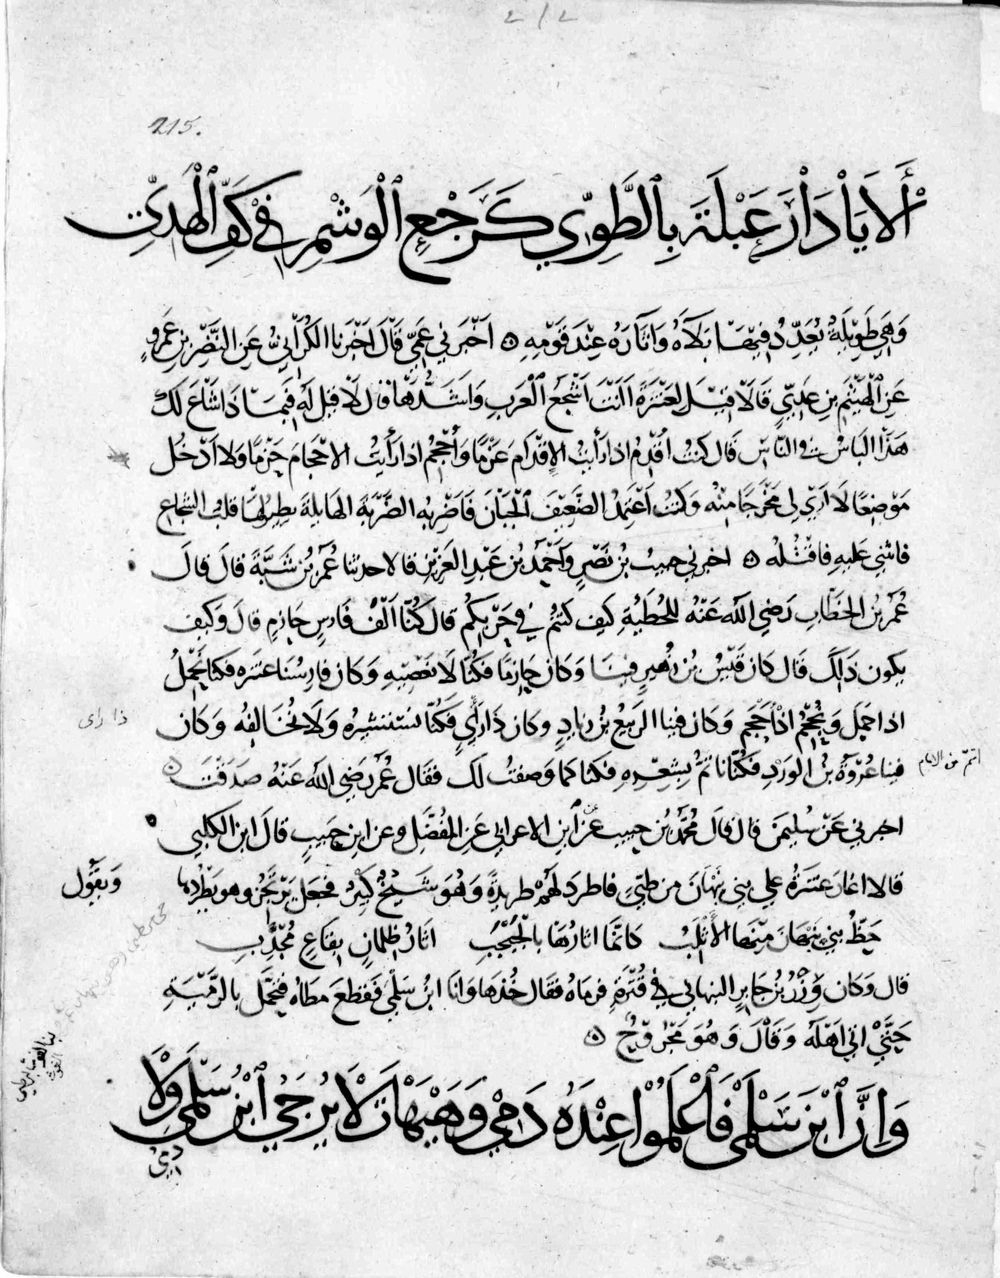 215.
أَلَا يَا دَارَ عَبْلَةَ بِالطَّوِيِّ كَرَجْعِ الْوَشْمِ فِي كَفِّ الْهَدِيِّ
وَهِيَ طَوِيلَةٌ يُعَدِّدُ فِيهَا بَلَاءَهُ وَآثَارَهُ عِنْدَ قَوْمِهِ ۞ أَخْبَرَنِي عَمِّي قَالَ أَخْبَرَنَا الْكُرَانِيُّ عَنِ النَّضْرِ بْنِ عَمْرٍو
عَنِ الْهَيْثَمِ بْنِ عَدِيٍّ قَالَا قِيلَ لِعَنْتَرَةَ أَأَنْتَ أَشْجَعُ الْعَرَبِ وَأَشَدُّهَا قَالَ لَا قِيلَ لَهُ فَبِمَا ذَا شَاعَ لَكَ
هَذَا الْبَاسُ فِي النَّاسِ قَالَ كُنْتُ أُقْدِمُ اذا رأيتُ الإِقْدَامَ عَزْمًا وَأُحْجِمُ اذا رَأَيتُ الإحْجَامَ حَزْمًا وَلَا أَدْخُلُ
مَوْضِعًا لَا أَرَى لِي مَخْرَجًا مِنْهُ وَكُنْتُ أَعْتَمِدُ الضَّعِيفَ الْجَبَانَ فَأَضْرِبُهُ الضَّرْبَةَ الْهَايِلَةَ يَطِيرُ لَهَا قَلْبُ الشُّجَاعِ
فاثنى عليه فاقتُلُه ۞ اخبرني حبيبُ بْنُ نَصْرٍ وَأَحْمَدُ بْنُ عَبْدِ الْعَزِيزِ قالا حدثنا عُمَرُ بْنُ شَبَّةَ قَالَ قَالَ
عُمَرُ بْنُ الْخَطَّابِ رَضِيَ اللهُ عَنْهُ لِلْحُطَيْئَةِ كَيْفَ كُنْتُمْ فِي حَرْبِكُمْ قَالَ كُنَّا أَلْفَ فَارِسٍ حَازِمٍ قَالَ وَكَيْفَ
يَكُونُ ذَلِكَ قَالَ كَانَ قَيْسُ بْنُ زُهَيْرٍ فِينَا وَكَانَ حَازِمًا فَكُنَّا لَا نَعْصِيهِ وَكَانَ فَارِسُنَا عَنْتَرَة فَكُنَّا نَحْمِلُ
اذا حَمَلَ وَنُحْجِمُ اذا أَحْجَمَ وَكَانَ فِينَا الرَّبِيعُ بْنُ زِيَادٍ وكَانَ ذَا رَأْيٍ فَكُنَّا نَسْتَشِيرُهُ وَلَا نُخَالِفُهُ وَكَانَ
ذا راى
فينا عُرْوَةُ بْنُ الْوَرْدِ فَكُنَّا نَأْتَمُّ بِشِعْرِهِ فكنا كما وَصفتُ لَكَ فَقَالَ عُمَرُ رَضِيَ اللهُ عَنْهُ صَدَقْتَ ۞
اخبرني عَلِيُّ بْنُ سُلَيْمَنَ قَالَ قَالَ مُحَمَّدُ بْنُ حبيب عَنِ ابْنِ الاعرابيِّ عَنِ الْمُفَضَّلِ وعن ابن حَبِيبٍ قَالَ ابْنُ الْكَلْبِيِّ
قَالَا اغار عَنْتَرَةُ على بني نَبْهَانَ مِنْ طَيِّئٍ فَاطَرَدَ لَهُمْ طَرِيدَةً وَهُوَ شَيْخٌ كَبِيرٌ فَجَعَلَ يَرْتَجِزُ وهو يَطْرُدُهَا
وَيَقُولُ
حَظُّ بَنِي نَبْهَانَ مِنْهَا الأَثْلَبُ كَأَنَّمَا آثَارُهَا بِالْحُجَيْجِبِ آثَارُ ظُلْمَانٍ بِقَاعٍ مُجْدِبِ
قَالَ وَكَانَ وَزَرُ بْنُ جَابِرٍ النبهاني في قُتْرَةٍ فرماهُ فَقَالَ خُذْهَا وَأَنَا ابْنُ سَلْمَى فَقَطَعَ مَطَاهُ فَتَحَمَّلَ بِالرَّمْيَةِ
حَتَّى أَتَى أَهْلَهُ وَقَالَ وَهُوَ مَجْرُوحٌ ۞
وَإِنَّ ابْنَ سَلْمَى فَاعْلَمُوا عِنْدَهُ دَمِي وَهَيْهَاتَ لَا يُرْجَى ابْنُ سَلْمَى وَلَا
دَمِي